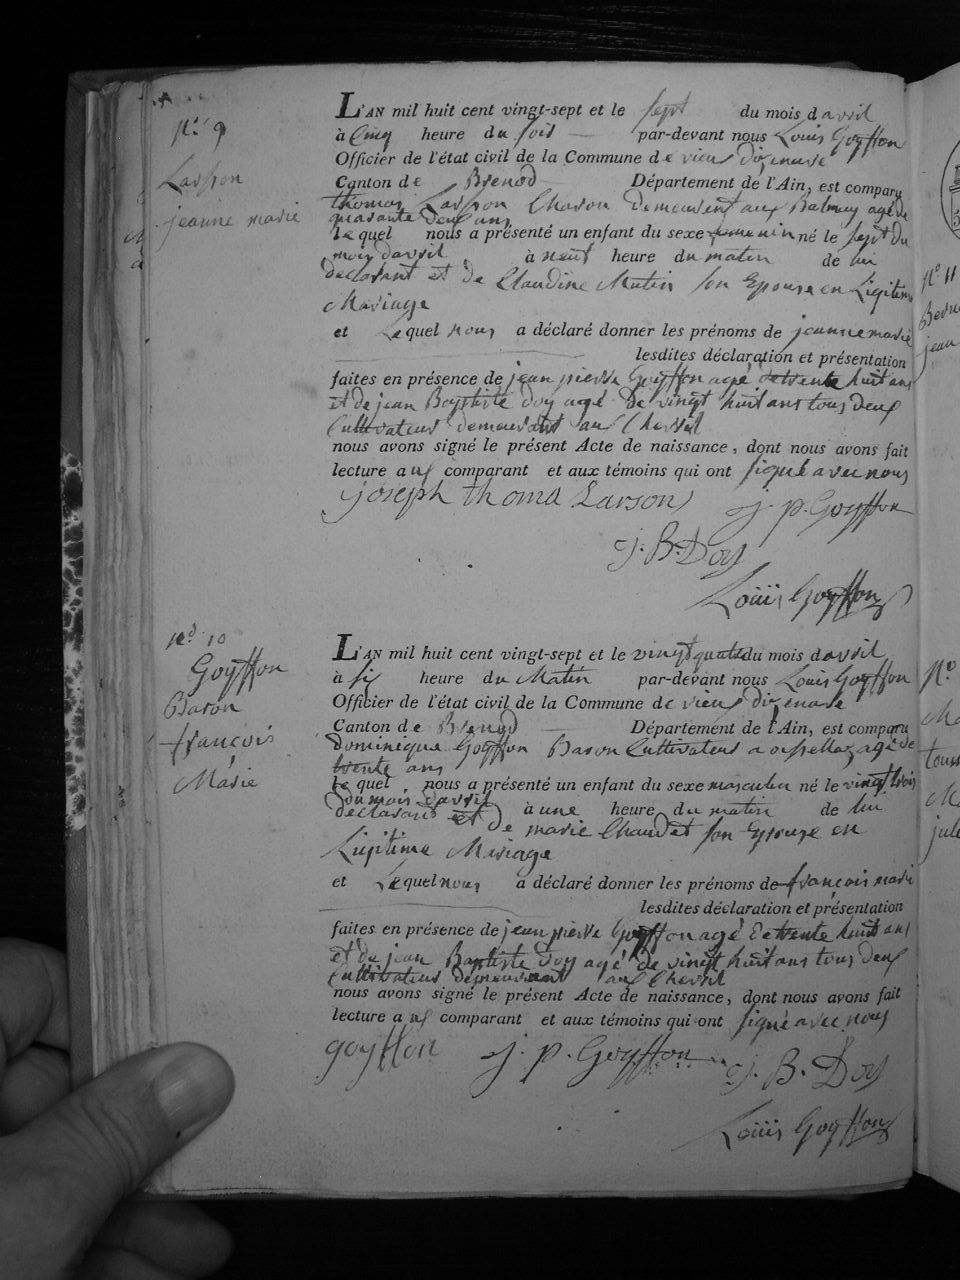 N.º 9
Larson
jeanne marie
L'AN mil huit cent vingt-sept et le sept du mois d avril
à Cinq heure du soir par-devant nous Louis Goyffon
Officier de l'état civil de la Commune de vieux dizenave
Canton de Brenod Département de l'Ain, est comparu
thomas Larson Charon demeurent aux Balmay agé de
quarante deux ans
le quel nous a présenté un enfant du sexe femenin né le sept du
mois d'avril à neuf heure du matin de lui
declarant et de Claudine Mutin son Epouse en Ligitime
Mariage
et Lequel nous a déclaré donner les prénoms de jeanne marie
lesdites déclaration et présentation
faites en présence de jean pierre Goyffon agé de trente huit ans
et de jean Baptiste Doy agé de vingt huit ans tous deux
Cultivateurs demeurant au Chevril
nous avons signé le présent Acte de naissance, dont nous avons fait
lecture aux comparant et aux témoins qui ont signé avec nous
joseph thoma Larson j. p. Goyffon
j. B. Doy
Louis Goyffon
N.º 10
Goyffon
Baron
françois
Marie
L'AN mil huit cent vingt-sept et le vingt quatre du mois d avril
à six heure du Matin par-devant nous Louis Goyffon
Officier de l'état civil de la Commune de vieux dizenave
Canton de Brenod Département de l'Ain, est comparu
dominique Goyffon Baron Cultivateur a agé de
trente ans
le quel nous a présenté un enfant du sexe masculin né le vingt trois
du mois d'avril à une heure du matin de lui
declarant et de marie Chaudet son Epouse en
Ligitime Mariage
et Lequel nous a déclaré donner les prénoms de françois marie
lesdites déclaration et présentation
faites en présence de jean pierre Goyffon agé de trente huit ans
et de jean Baptiste Doy agé de vingt huit ans tous deux
Cultivateurs demeurant au Chevril
nous avons signé le présent Acte de naissance, dont nous avons fait
lecture aux comparant et aux témoins qui ont signé avec nous
goyffon j. p. Goyffon j. B. Doy
Louis Goyffon
N.º 11
jean
N.º